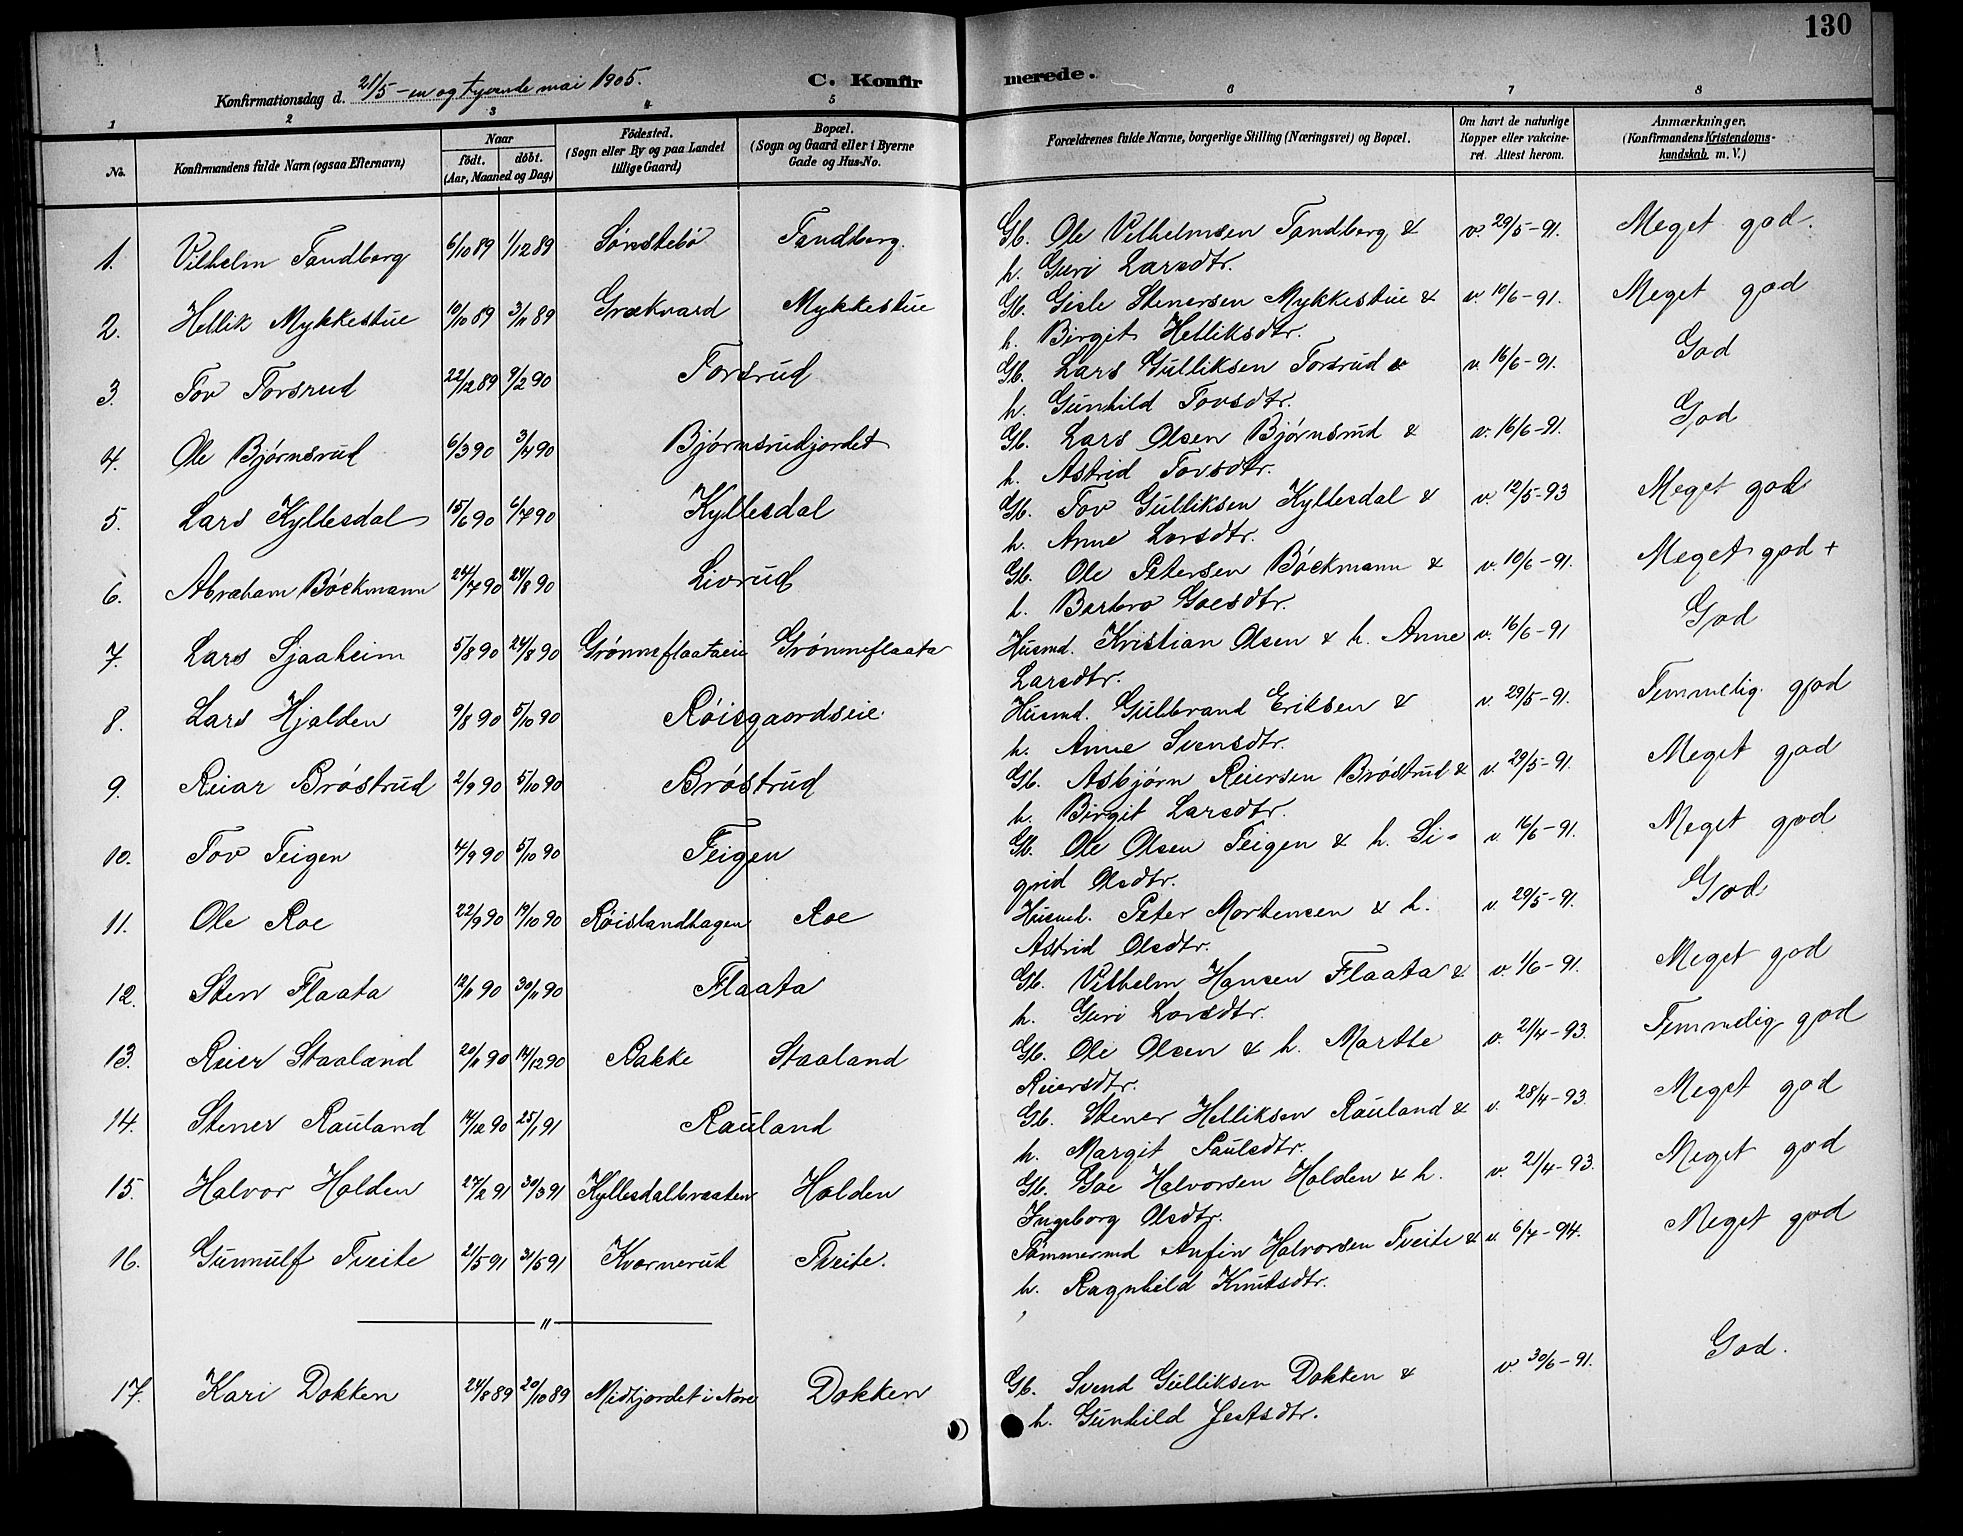 130
Konfirmationsdag d. 21/5 - en og tyvende mai 1905.
C. Konfirmerede.
1 2 3 4 5 6 7 8
No. Konfirmandens fulde Navn (ogsaa Efternavn) Naar født. døbt. (Aar, Maaned og Dag) Fødested. (Sogn eller By og paa Landet tillige Gaard) Bopæl. (Sogn og Gaard eller i Byerne Gade og Hus-No. Forældrenes fulde Navne, borgerlige Stilling (Næringsvei) og Bopæl. Om havt de naturlige Kopper eller vakcineret. Attest herom. Anmærkninger. (Konfirmandens Kristendomskundskab m. V.)
1. Vilhelm Tandberg 6/10 89 1/12 89 Sønstebø Tandberg. Gb. Ole Vilhelmsen Tandberg & v. 29/5-91. Meget god.
h. Guri Larsdtr.
2. Hellik Mykkestue 10/10 89 3/11 89 Grækvard Mykkestue Gb. Gisle Stenersen Mykkestue & v. 10/6-91. Meget god
h. Birgit Helliksdtr.
3. Tov Forsrud 22/12 89 9/2 90 Forsrud Gb. Lars Gulliksen Forsrud & v. 16/6-91. God
h. Gunhild Tovsdtr.
4. Ole Bjørnsrud 6/3 90 3/4 90 Bjørnsrudjordet Gb. Lars Olsen Bjørnsrud & v. 16/6-91. God
h. Astrid Tovsdtr.
5. Lars Kyllesdal 15/6 90 6/7 90 Kyllesdal Gb. Tov Gulliksen Kyllesdal & v. 12/5-93 Meget god
h. Anne Larsdtr.
6. Abraham Böckmann 24/7 90 24/8 90 Livrud Gb. Ole Petersen Böckmann & v. 10/6-91. Meget god +
h. Barbro Goesdtr.
7. Lars Sjaaheim 5/8 90 24/8 90 Grønneflaataeie Grønneflaata Husmd. Kristian Olsen & h. Anne v. 16/6-91 God
Larsdtr.
8. Lars Hjalden 9/8 90 5/10 90 Røisgaardseie Husmd. Gulbrand Eriksen & v. 29/5-91. Temmelig god
h. Anne Svensdtr.
9. Reiar Brøstrud 2/9 90 5/10 90 Brøstrud Gb. Asbjørn Reiersen Brøstrud & v. 29/5-91. Meget god
h. Birgit Larsdtr.
10. Tov Teigen 4/9 90 5/10 90 Teigen Gb. Ole Olsen Teigen & h. Si- v. 16/6-91. Meget god
grid Olsdtr.
11. Ole Roe 22/9 90 19/10 90 Røislandhagen Roe Husmd. Peter Mortensen & h. v. 29/5-91. God
Astrid Olsdtr.
12. Sten Flaata 12/11 90 30/11 90 Flaata Gb. Vilhelm Hansen Flaata & v. 1/6-91. Meget god
h. Guri Larsdtr.
13. Reier Staaland 20/11 90 14/12 90 Bakke Staaland Gb. Ole Olsen & h. Marthe v. 21/4-93. Temmelig god
Reiersdtr.
14. Stener Rauland 14/12 90 25/1 91 Rauland Gb. Stener Helliksen Rauland & v. 28/4-93. Meget god
h. Margit Paulsdtr.
15. Halvor Holden 27/2 91 30/3 91 Kyllesdalbraaten Holden Gb. Goe Halvorsen Holden & h. v. 21/4-93. Meget god
Ingeborg Olsdtr.
16. Gunnulf Tveite 21/5 91 31/5 91 Kvarnerud Tveite. Tømmermd Anfin Halvorsen Tveite & v. 6/4-94. Meget god
h. Ragnhild Knutsdtr.
"
17. Kari Dokken 24/8 89 20/10 89 Midtjordet i Nore Dokken Gb. Svend Gulliksen Dokken & v. 30/6-91. God.
h. Gunhild Jeatsdtr.